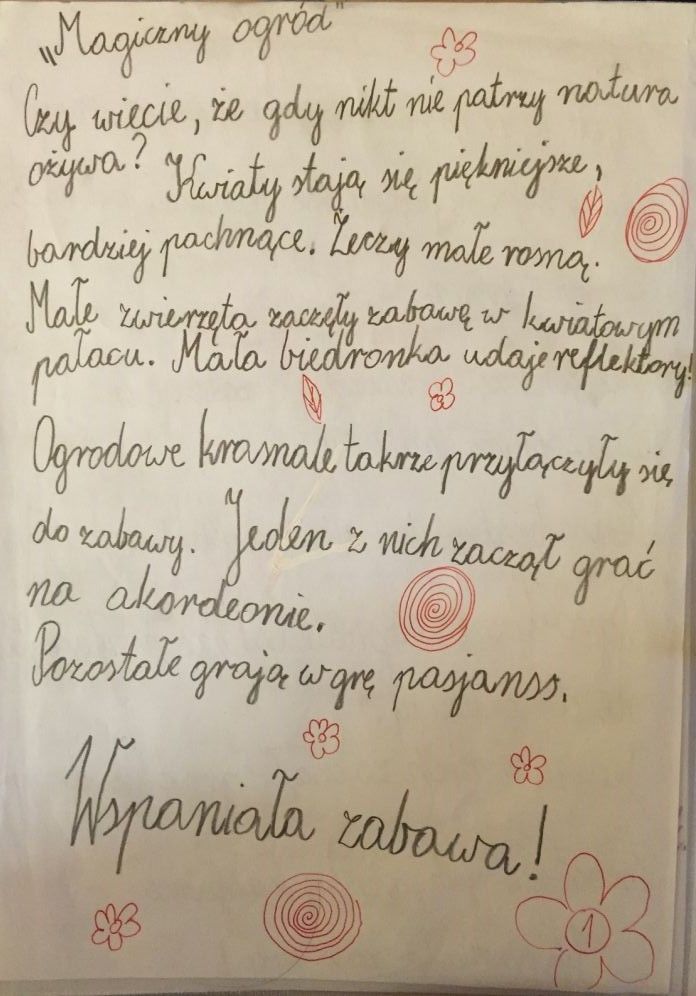 „Magiczny ogród"
Czy wiecie, że gdy nikt nie patrzy natura
ożywa? Kwiaty stają się piękniejsze,
bardziej pachnące. Żeczy małe rosną.
Małe zwierzęta zaczęły zabawę w kwiatowym
pałacu. Mała biedronka udaje reflektory!
Ogrodowe krasnale takrze przyłączyły się
do zabawy. Jeden z nich zaczął grać
na akordeonie.
Pozostałe grają w grę pasjanss.
Wspaniała zabawa!
1